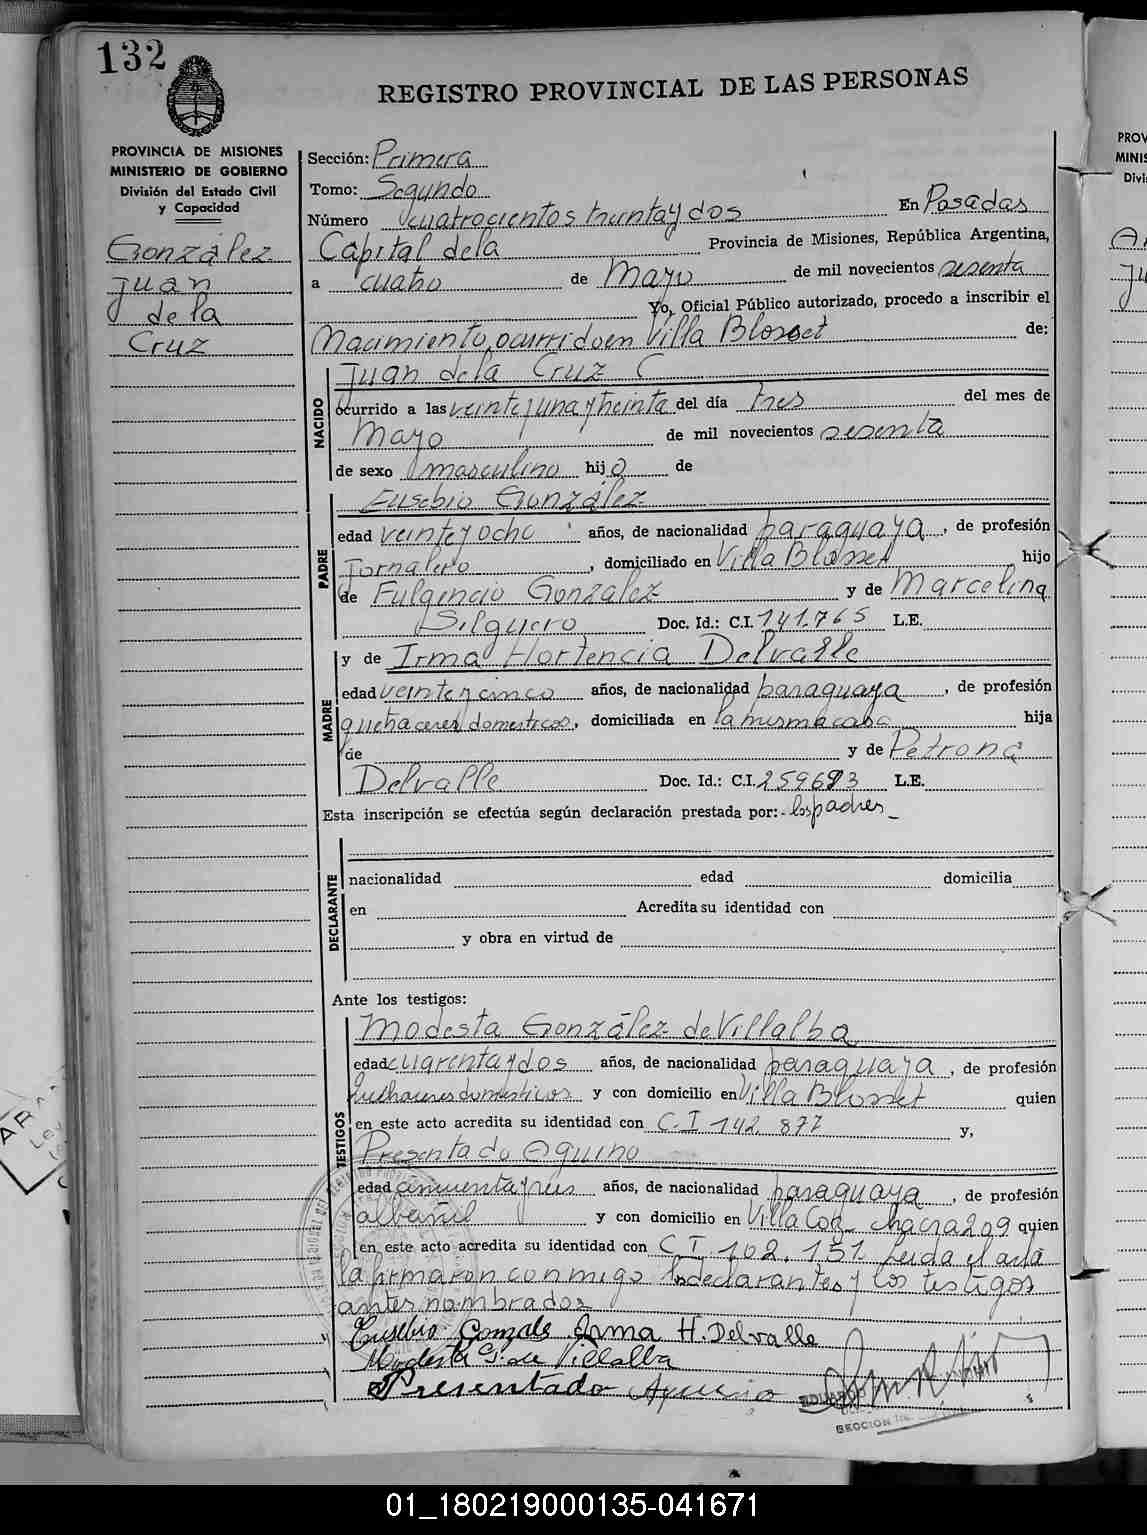 132
REGISTRO PROVINCIAL DE LAS PERSONAS
PROVINCIA DE MISIONES
MINISTERIO DE GOBIERNO
División del Estado Civil
y Capacidad
González
Juan
de la
Cruz
Sección: Primera
Tomo: Segundo
Número cuatrocientos treinta y dos En Posadas
Capital de la Provincia de Misiones, República Argentina,
a cuatro de Mayo de mil novecientos sesenta
Yo, Oficial Público autorizado, procedo a inscribir el
Nacimiento, ocurrido en Villa Blosset de:
NACIDO
Juan de la Cruz
ocurrido a las veinte y una y treinta del día tres del mes de
Mayo de mil novecientos sesenta
de sexo masculino hijo de
PADRE
Eusebio González
edad veinte y ocho años, de nacionalidad paraguaya, de profesión
Jornalero, domiciliado en Villa Blosset hijo
de Fulgencio González y de Marcelina
Silguero Doc. Id.: C.I. 141.765 L.E.
MADRE
y de Irma Hortencia Delvalle
edad veinte y cinco años, de nacionalidad paraguaya, de profesión
quehaceres domesticos, domiciliada en la misma casa hija
de y de Petrona
Delvalle Doc. Id.: C.I. L.E.
Esta inscripción se efectúa según declaración prestada por:- los padres_
DECLARANTE
nacionalidad edad domicilia
en Acredita su identidad con
y obra en virtud de
Ante los testigos:
TESTIGOS
Modesta González de Villalba
edad cuarenta y dos años, de nacionalidad paraguaya, de profesión
quehaceres domesticos y con domicilio en Villa Blosset quien
en este acto acredita su identidad con C.I 142.877 y,
Presentado Aquino
edad cincuenta y años, de nacionalidad paraguaya, de profesión
albañil y con domicilio en Villa chacra 209 quien
en este acto acredita su identidad con C.I. 102.151. Leida el acta
la firmaron conmigo los declarantes y los testigos
antes nombrados
Eusebio Gonzale Irma H. Delvalle
Modesta G. de Villalba
Presentado Aquino
EDUARDO
SECCION
01_180219000135-041671